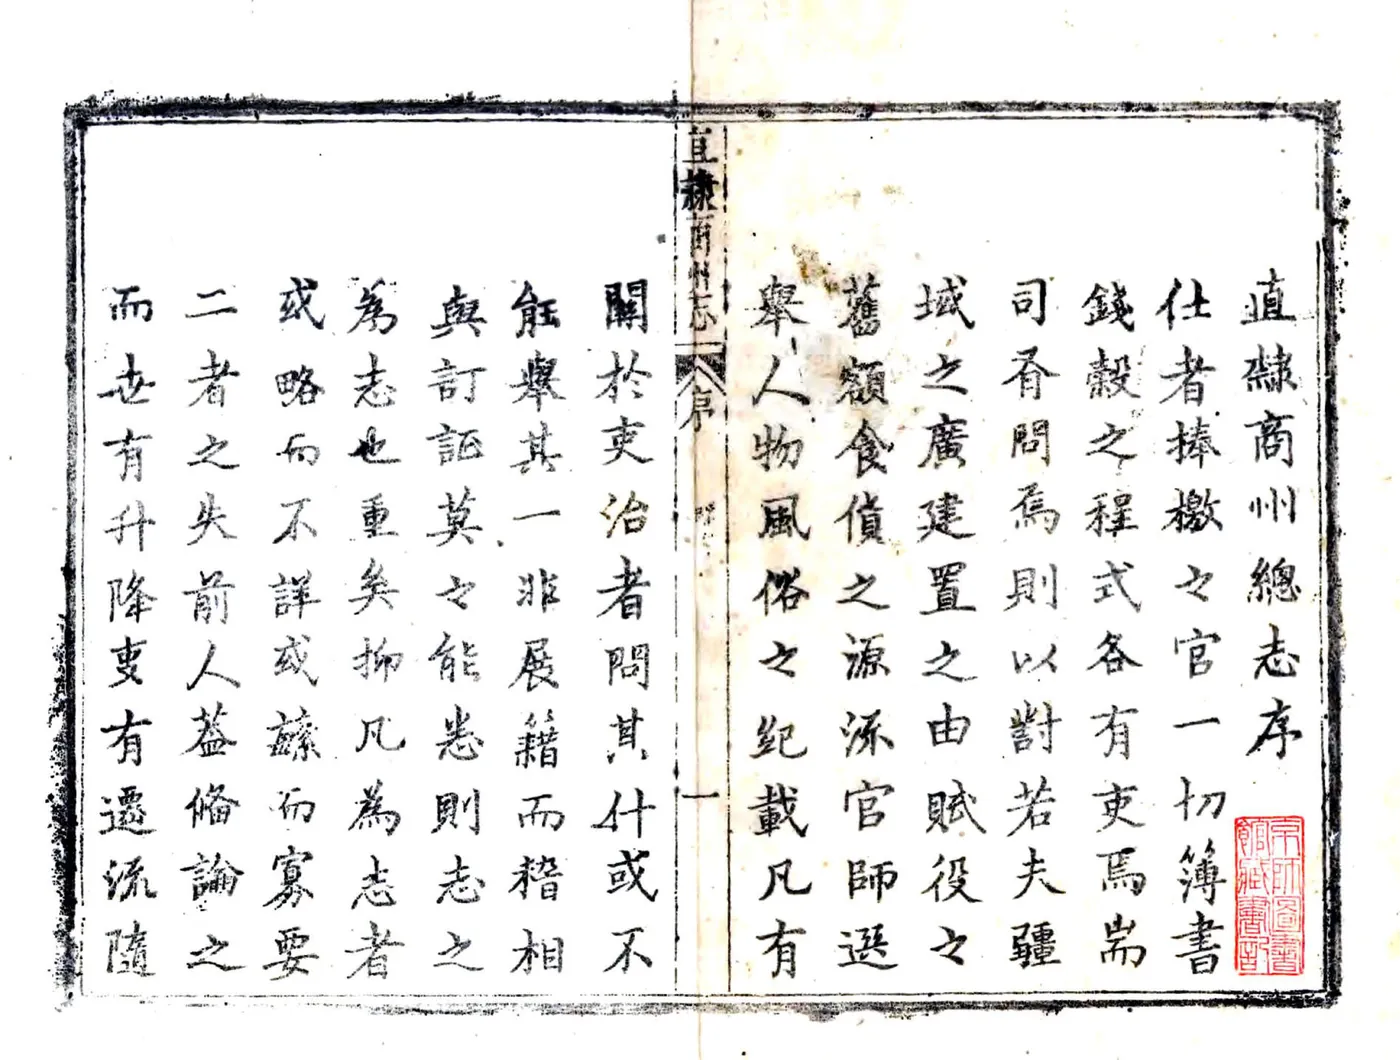 直隸商州總志序
仕者捧檄之官一切簿書
錢穀之程式各有吏焉耑
司胥問焉則以對若夫疆
域之廣建置之由賦役之
舊額食貨之源流官師選
舉人物風俗之紀載凡有
直隸商州志
序
一
關於吏治者問其什或不
能舉其一非展籍而稽相
與訂証莫之能悉則志之
為志也重矣抑凡為志者
或略而不詳或蕪而寡要
二者之失前人葢偹論之
而世有升降叓有遷流隨
京師圖書館藏書記